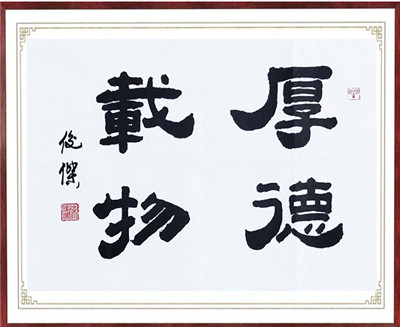 厚德
載物
俊傑